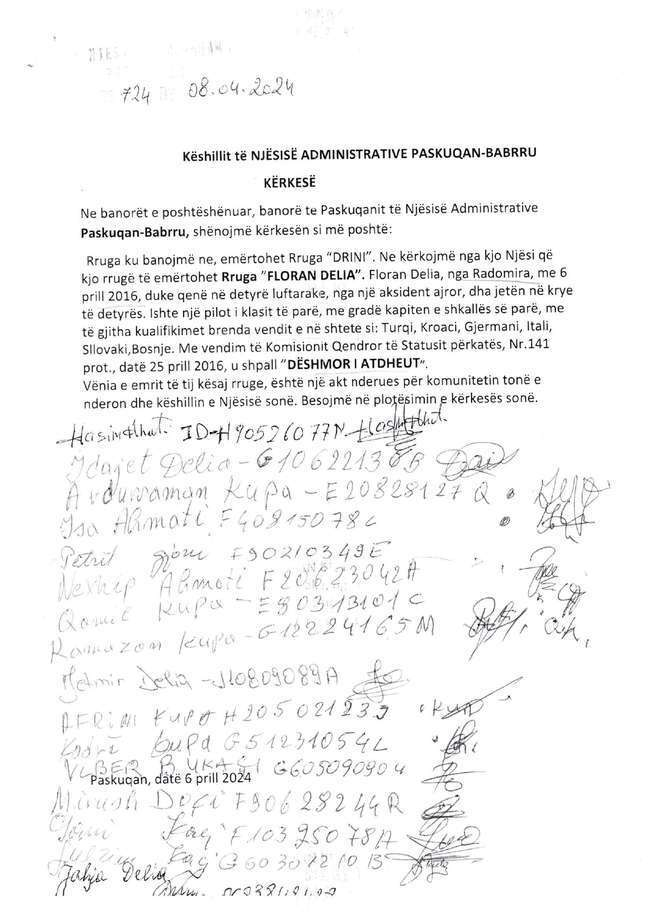 724 08.04.2024
Këshillit të NJËSISË ADMINISTRATIVE PASKUQAN-BABRRU
KËRKESË
Ne banorët e poshtëshënuar, banorë te Paskuqanit të Njësisë Administrative
Paskuqan-Babrru, shënojmë kërkesën si më poshtë:
Rruga ku banojmë ne, emërtohet Rruga “DRINI”. Ne kërkojmë nga kjo Njësi që
kjo rrugë të emërtohet Rruga ”FLORAN DELIA”. Floran Delia, nga Radomira, me 6
prill 2016, duke qenë në detyrë luftarake, nga një aksident ajror, dha jetën në krye
të detyrës. Ishte një pilot i klasit të parë, me gradë kapiten e shkallës së parë, me
të gjitha kualifikimet brenda vendit e në shtete si: Turqi, Kroaci, Gjermani, Itali,
Sllovaki,Bosnje. Me vendim të Komisionit Qendror të Statusit përkatës, Nr.141
prot., datë 25 prill 2016, u shpall ”DËSHMOR I ATDHEUT”.
Vënia e emrit të tij kësaj rruge, është një akt nderues për komunitetin tonë e
nderon dhe këshillin e Njësisë sonë. Besojmë në plotësimin e kërkesës sonë.
ID-H90526077N
Idajet Delia - G10622138B
Avdurraman Kupa - E20828127Q
Isa Ahmati F40815078L
Petrit Gjoni F90210349E
Nexhip Ahmati F20623042A
Qamil Kupa - E80313101C
Ramazan Kupa - G12224165M
Delia - J10809089A
AFRIM KUPA H20502123J
Kupa G51231054L
G60509090U
Paskuqan, datë 6 prill 2024
F90628244R
F10325078A
G60307210B
Jahja Delia